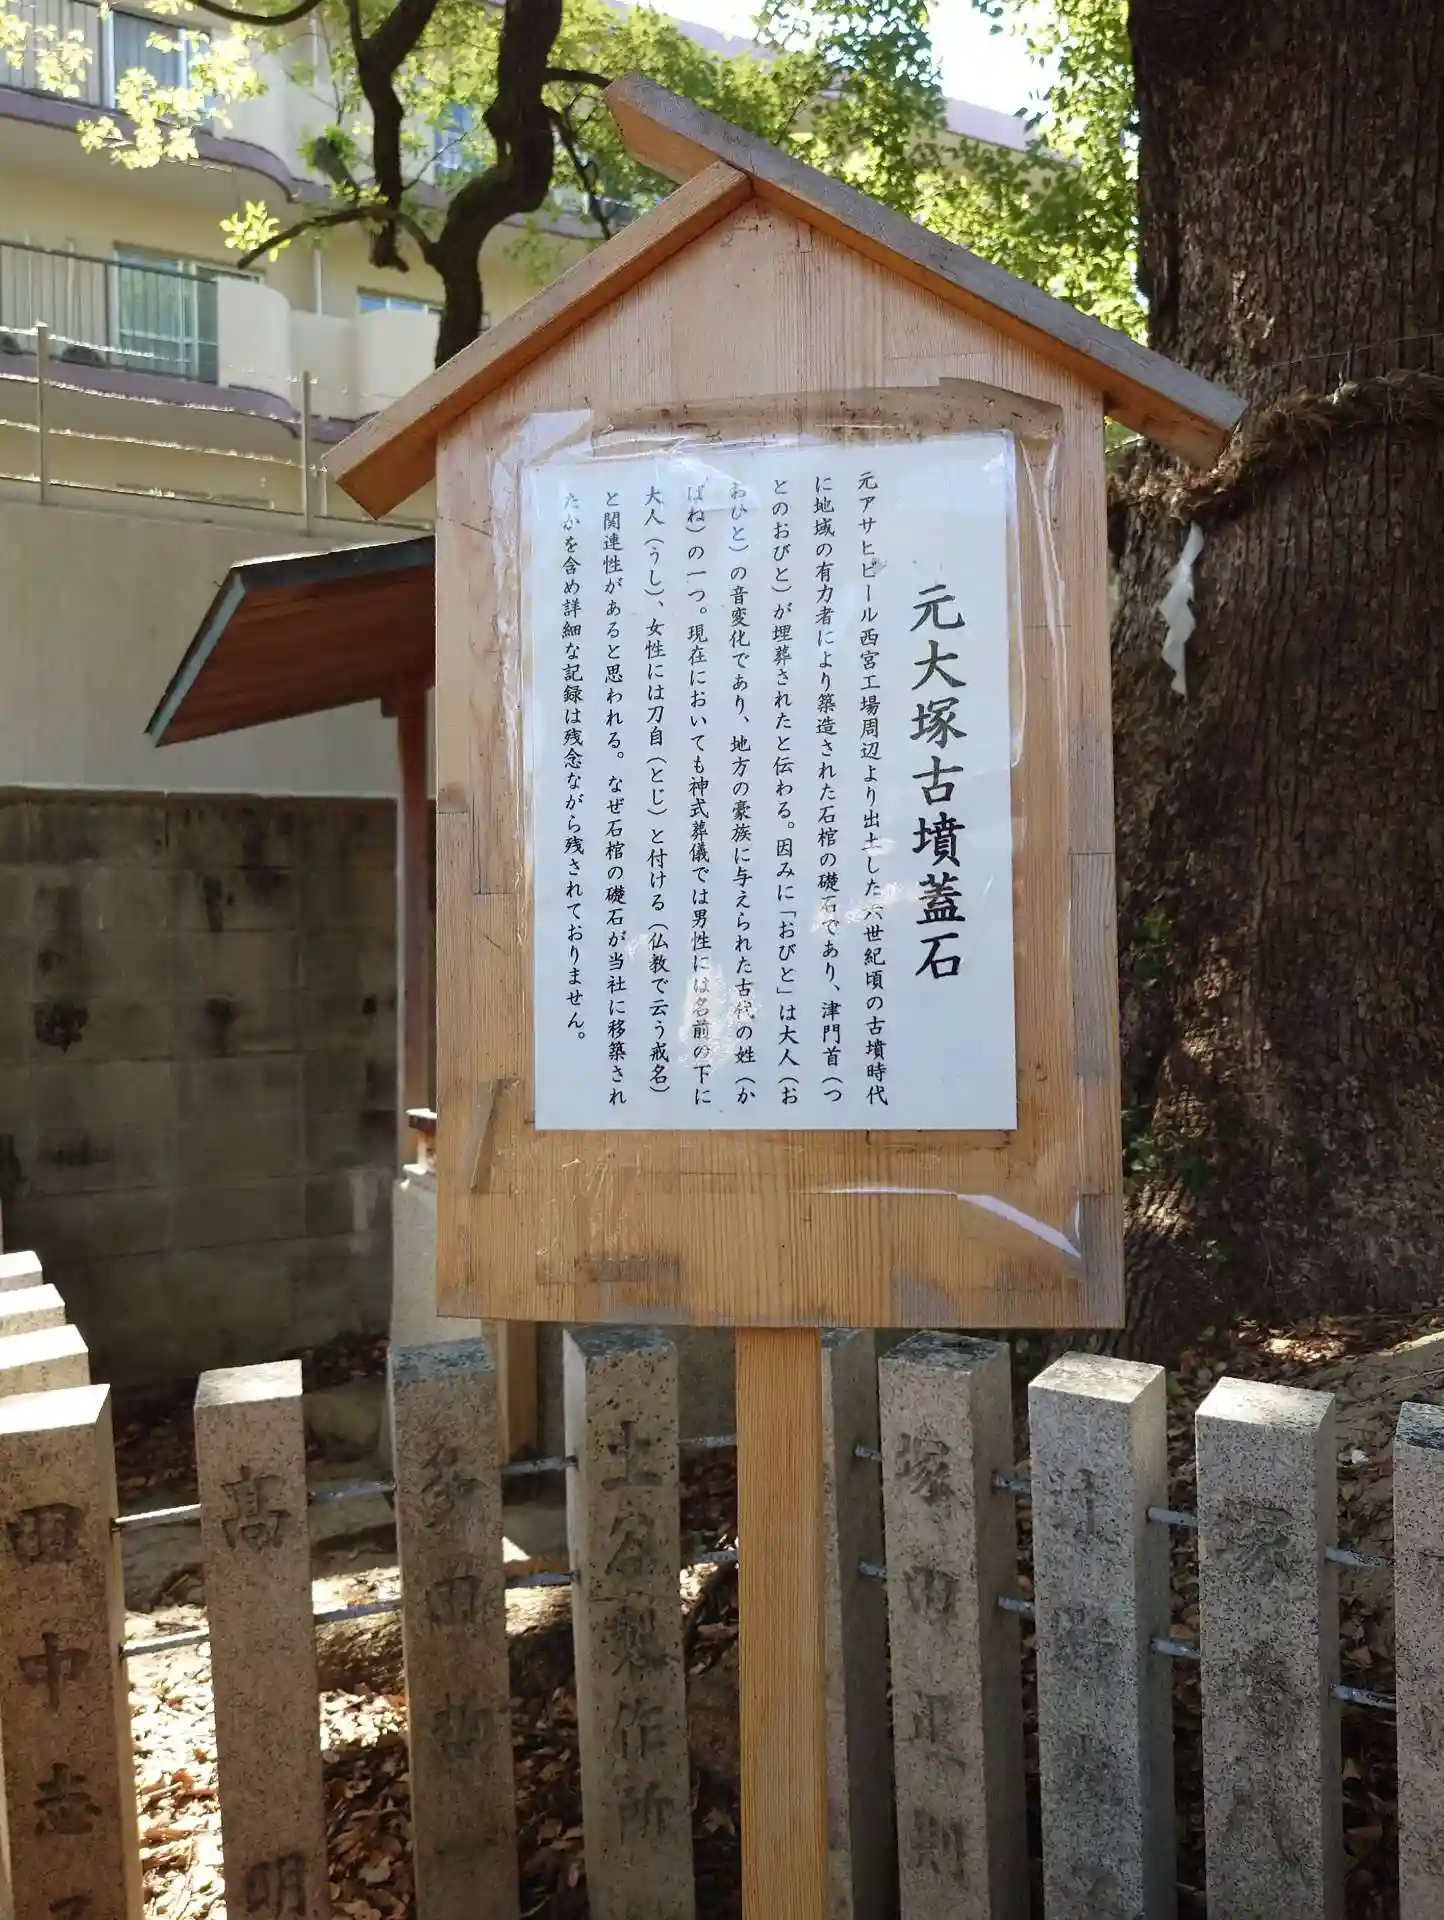 元大塚古墳蓋石
元アサヒビール西宮工場周辺より出土した六世紀頃の古墳時代
に地域の有力者により築造された石棺の礎石であり、津門首（つ
とのおびと）が埋葬されたと伝わる。因みに「おびと」は大人（お
おひと）の音変化であり、地方の豪族に与えられた古代の姓（か
ばね）の一つ。現在においても神式葬儀では男性には名前の下に
大人（うし）、女性には刀自（とじ）と付ける（仏教で云う戒名）
と関連性があると思われる。なぜ石棺の礎石が当社に移築され
たかを含め詳細な記録は残念ながら残されておりません。
塚田正則
土谷製作所
多田
高
明
田中志